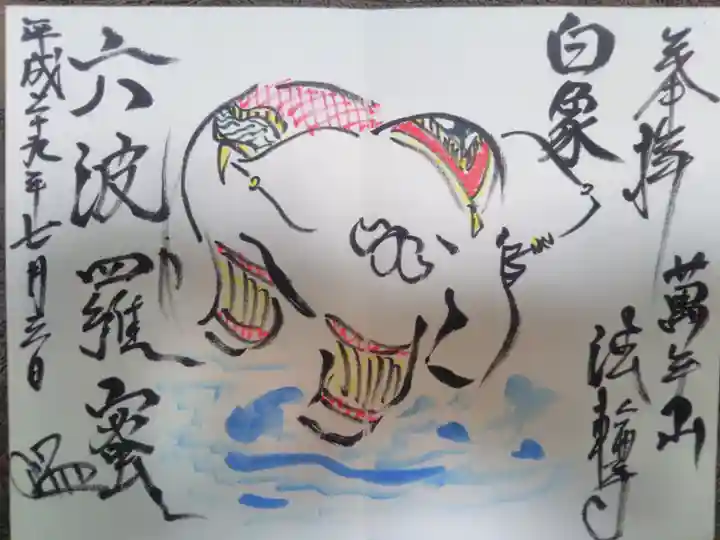 奉拝
萬年山
法輪寺
白象
六波羅蜜
平成二十九年七月三日